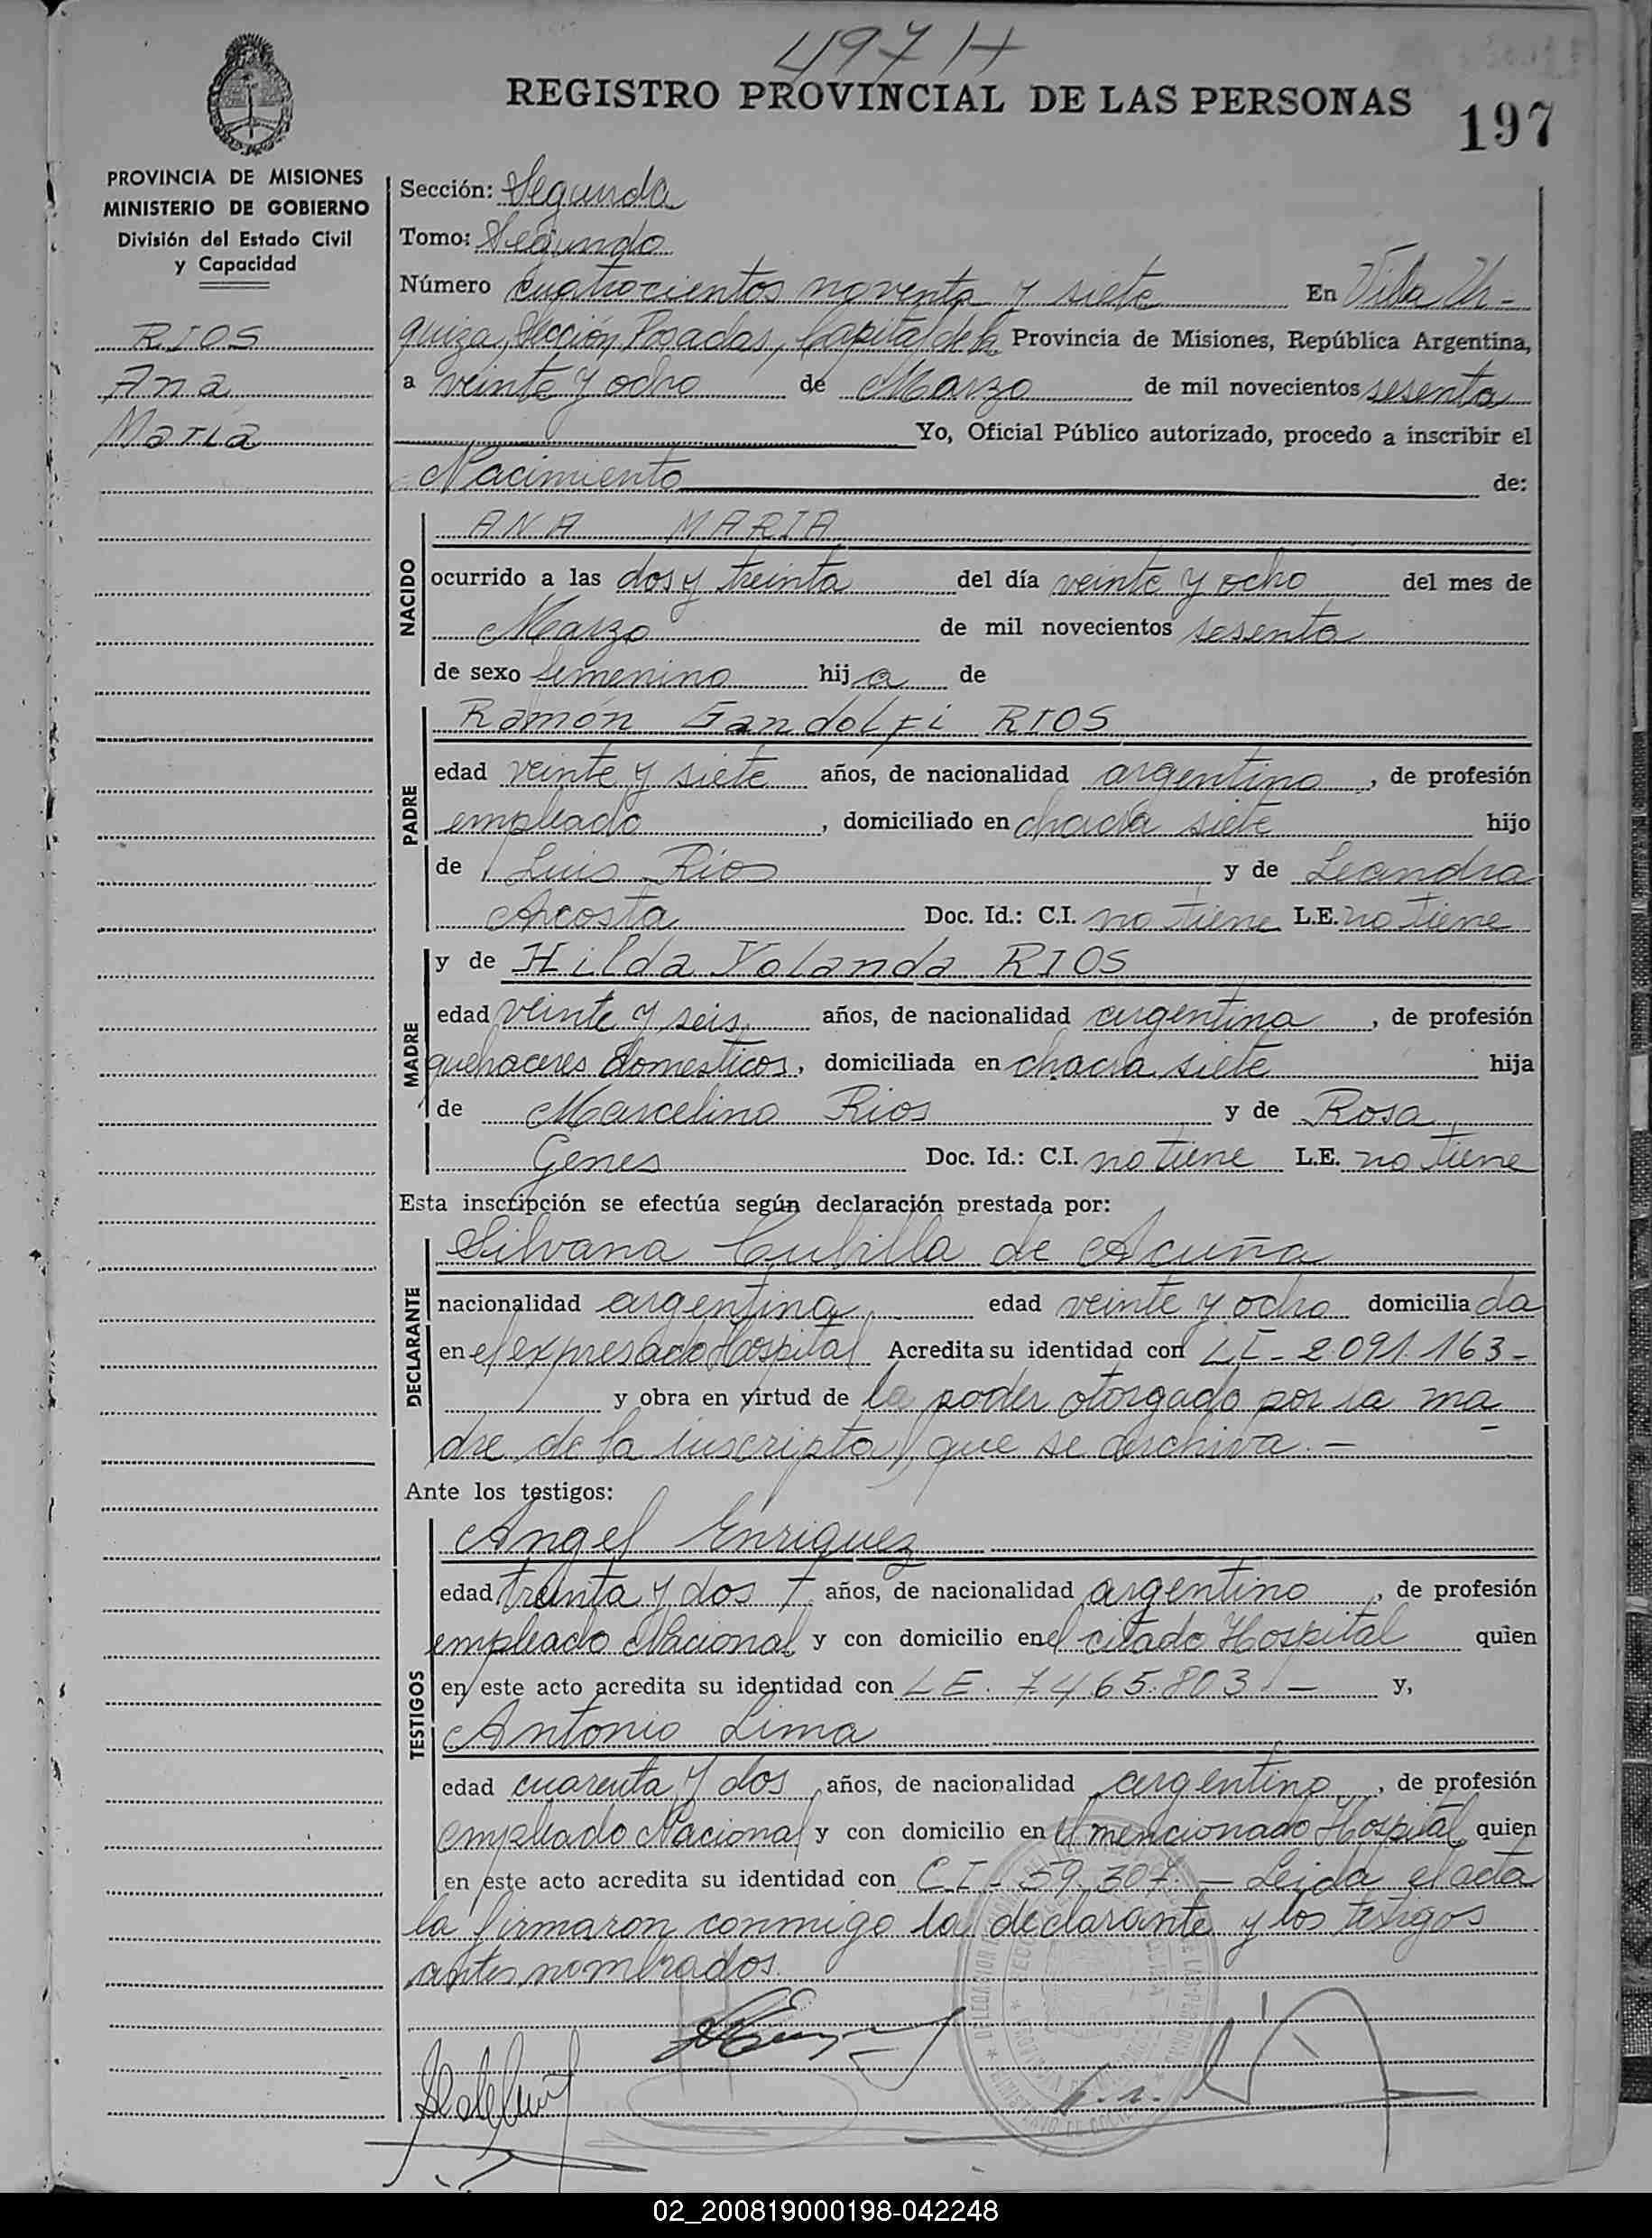 497 H
REGISTRO PROVINCIAL DE LAS PERSONAS
197
PROVINCIA DE MISIONES
MINISTERIO DE GOBIERNO
División del Estado Civil
y Capacidad
RIOS
Ana
María
Sección: Segunda
Tomo: Segundo
Número cuatrocientos noventa y siete En Villa Ur-
quiza, Sección Posadas, Capital de la Provincia de Misiones, República Argentina,
a veinte y ocho de Marzo de mil novecientos sesenta
Yo, Oficial Público autorizado, procedo a inscribir el
Nacimiento de:
NACIDO
ANA MARIA
ocurrido a las dos y treinta del día veinte y ocho del mes de
Marzo de mil novecientos sesenta
de sexo femenino hija de
PADRE
Ramón Gandolfi RIOS
edad veinte y siete años, de nacionalidad argentino, de profesión
empleado, domiciliado en chacra siete hijo
de Luis Rios y de Leandra
Acosta Doc. Id.: C.I. no tiene L.E. no tiene
MADRE
y de Hilda Yolanda RIOS
edad veinte y seis años, de nacionalidad argentina, de profesión
quehaceres domesticos, domiciliada en chacra siete hija
de Marcelino Rios y de Rosa
Genes Doc. Id.: C.I. no tiene L.E. no tiene
Esta inscripción se efectúa según declaración prestada por:
DECLARANTE
Silvana Cubilla de Acuña
nacionalidad argentina edad veinte y ocho domiciliada
en el expresado Hospital Acredita su identidad con LE - 2.091.163 -
y obra en virtud de poder otorgado por la ma
dre de la inscripta, que se archiva. -
Ante los testigos:
TESTIGOS
Angel Enriquez
edad treinta y dos años, de nacionalidad argentino, de profesión
empleado Nacional y con domicilio en el citado Hospital quien
en este acto acredita su identidad con LE. 7.465.803. - y,
Antonio Lima
edad cuarenta y dos años, de nacionalidad argentino, de profesión
empleado Nacional y con domicilio en el mencionado Hospital quien
en este acto acredita su identidad con C.I - 59.307. - Leida el acta
la firmaron conmigo la declarante y los testigos
antes nombrados.
02_200819000198-042248